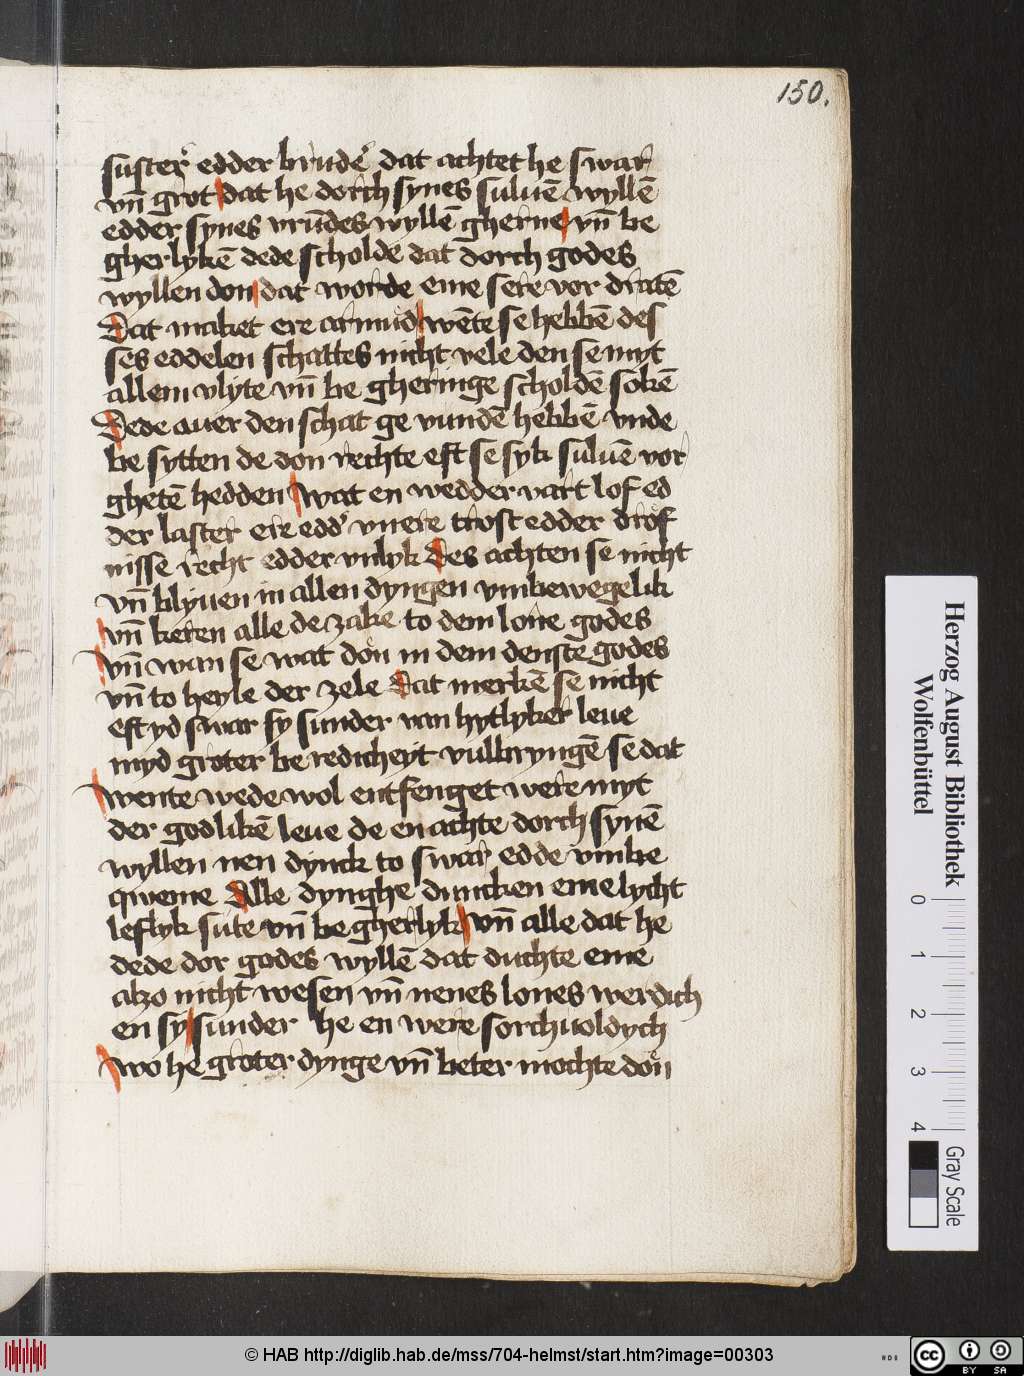 150.
suster edder brudeʾ dat achtet he swar
vn̄ grot dat he dorch synes suluē wyllē
edder synes vrūdes wyllē gherne vn̄ be
gherlykē dede scholde dat dorch godes
wyllen don dat worde eme sere vor dratē
Dat maket ere armud wēte se hebbē des
ses eddelen schattes nicht vele den se myt
allem vlyte vn̄ be gheringe scholdē sokē
Dede auer den schat ge vundē hebbē vnde
be sytten de don rechte eft se syk suluē vor
ghetē hedden wat en wedder vart lof ed
der laster ere eddʾ vnere trost edder drof
nisse recht edder vnlyk Des achten se nicht
vn̄ blyuen in allen dyngen vmbewegelik
vn̄ keren alle de zake to dem lone godes
vn̄ wan se wat don in dem denste godes
vn̄ to heyle der zele Dat merkē se nicht
eft yd swar sy sunder van hytlyker leue
myd groter be redicheyt vulbryngē se dat
wente wede wol entfenget were myt
der godlikē leue de en achte dorch synē
wyllen nen dynck to swar edde vmbe
qweme Alle dynghe duncken eme lycht
leflyk sute vn̄ be gherlyk vn̄ alle dat he
dede dor godes wyllē dat duchte eme
alzo nicht wesen vn̄ nenes lones werdich
en sy sunder he en were sorchuoldych
wo he groter dynge vn̄ beter mochte don
Herzog August Bibliothek
Wolfenbüttel
0 1 2 3 4
Gray Scale
© HAB http://diglib.hab.de/mss/704-helmst/start.htm?image=00303
HAB
CC BY SA